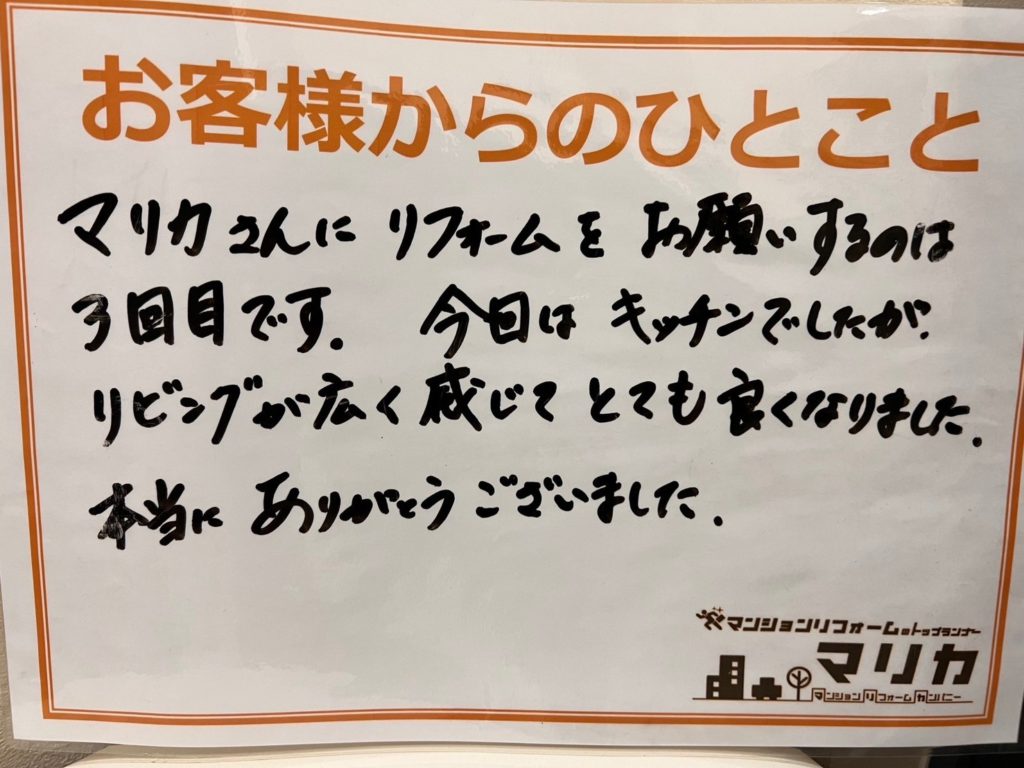 お客様からのひとこと
マリカさんに リフォームを お願いするのは
3回目です. 今日は キッチンでしたが.
リビングが広く感じて とても良くなりました.
本当に ありがとうございました.
マンションリフォームのトップランナー
マリカ
マンションリフォームカンパニー